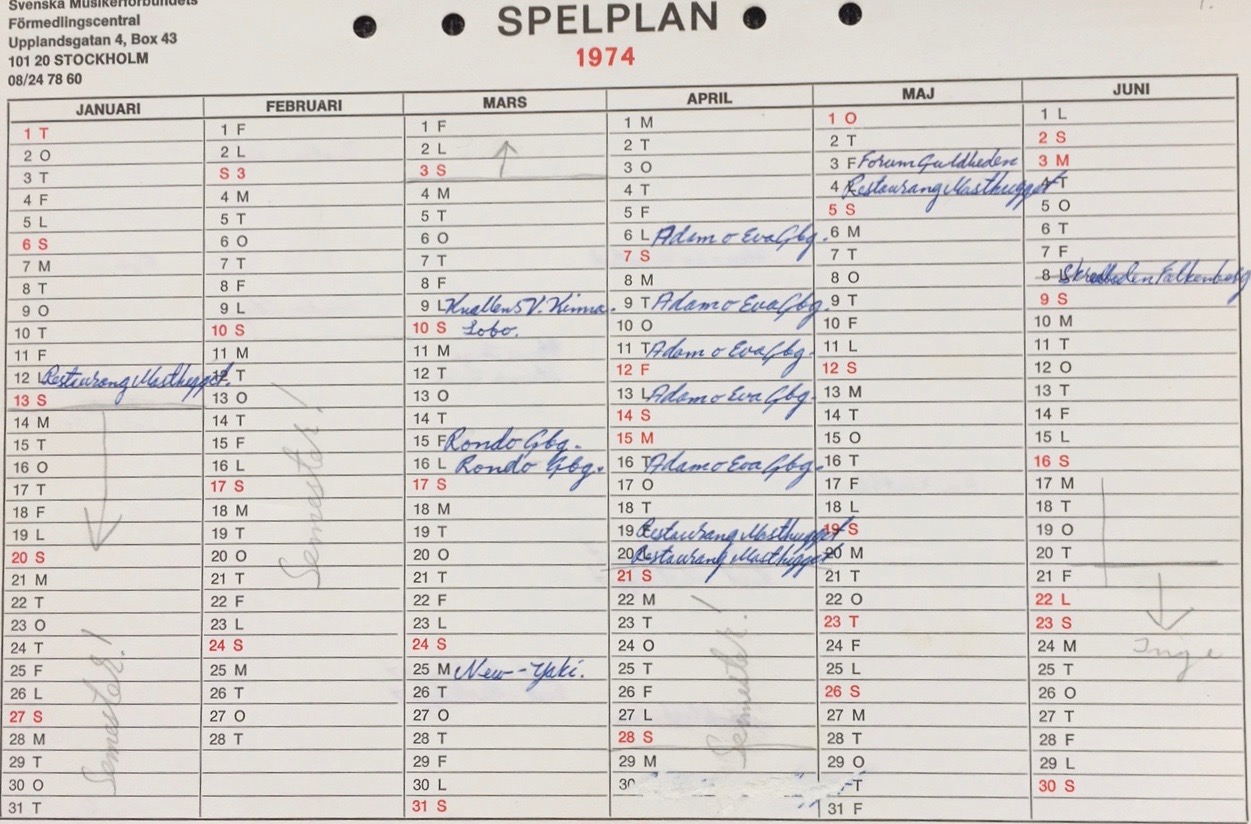 Svenska Musikerförbundets
Förmedlingscentral
Upplandsgatan 4, Box 43
101 20 STOCKHOLM
08/24 78 60
SPELPLAN
1974
JANUARI
1 T
2 O
3 T
4 F
5 L
6 S
7 M
8 T
9 O
10 T
11 F
12 L Restaurang Masthugget.
13 S
14 M
15 T
16 O
17 T
18 F
19 L
20 S
21 M
22 T
23 O
24 T
25 F
26 L
27 S
28 M
29 T
30 O
31 T
Semester!
FEBRUARI
1 F
2 L
S 3
4 M
5 T
6 O
7 T
8 F
9 L
10 S
11 M
12 T
13 O
14 T
15 F
16 L
17 S
18 M
19 T
20 O
21 T
22 F
23 L
24 S
25 M
26 T
27 O
28 T
Semester!
MARS
1 F
2 L
3 S
4 M
5 T
6 O
7 T
8 F
9 L Knallens V. Kinna.
10 S Lobo.
11 M
12 T
13 O
14 T
15 F Rondo Gbg.
16 L Rondo Gbg.
17 S
18 M
19 T
20 O
21 T
22 F
23 L
24 S
25 M New-Yaki.
26 T
27 O
28 T
29 F
30 L
31 S
APRIL
1 M
2 T
3 O
4 T
5 F
6 L Adam o Eva Gbg.
7 S
8 M
9 T Adam o Eva Gbg.
10 O
11 T Adam o Eva Gbg.
12 F
13 L Adam o Eva Gbg.
14 S
15 M
16 T Adam o Eva Gbg.
17 O
18 T
19 F Restaurang Masthugget
20 L Restaurang Masthugget
21 S
22 M
23 T
24 O
25 T
26 F
27 L
28 S
29 M
30
Semester!
MAJ
1 O
2 T
3 F Forum Guldheden
4 L Restaurang Masthugget
5 S
6 M
7 T
8 O
9 T
10 F
11 L
12 S
13 M
14 T
15 O
16 T
17 F
18 L
19 S
20 M
21 T
22 O
23 T
24 F
25 L
26 S
27 M
28 T
29 O
T
31 F
JUNI
1 L
2 S
3 M
4 T
5 O
6 T
7 F
8 L Falkenberg
9 S
10 M
11 T
12 O
13 T
14 F
15 L
16 S
17 M
18 T
19 O
20 T
21 F
22 L
23 S
24 M
25 T
26 O
27 T
28 F
29 L
30 S
Inge